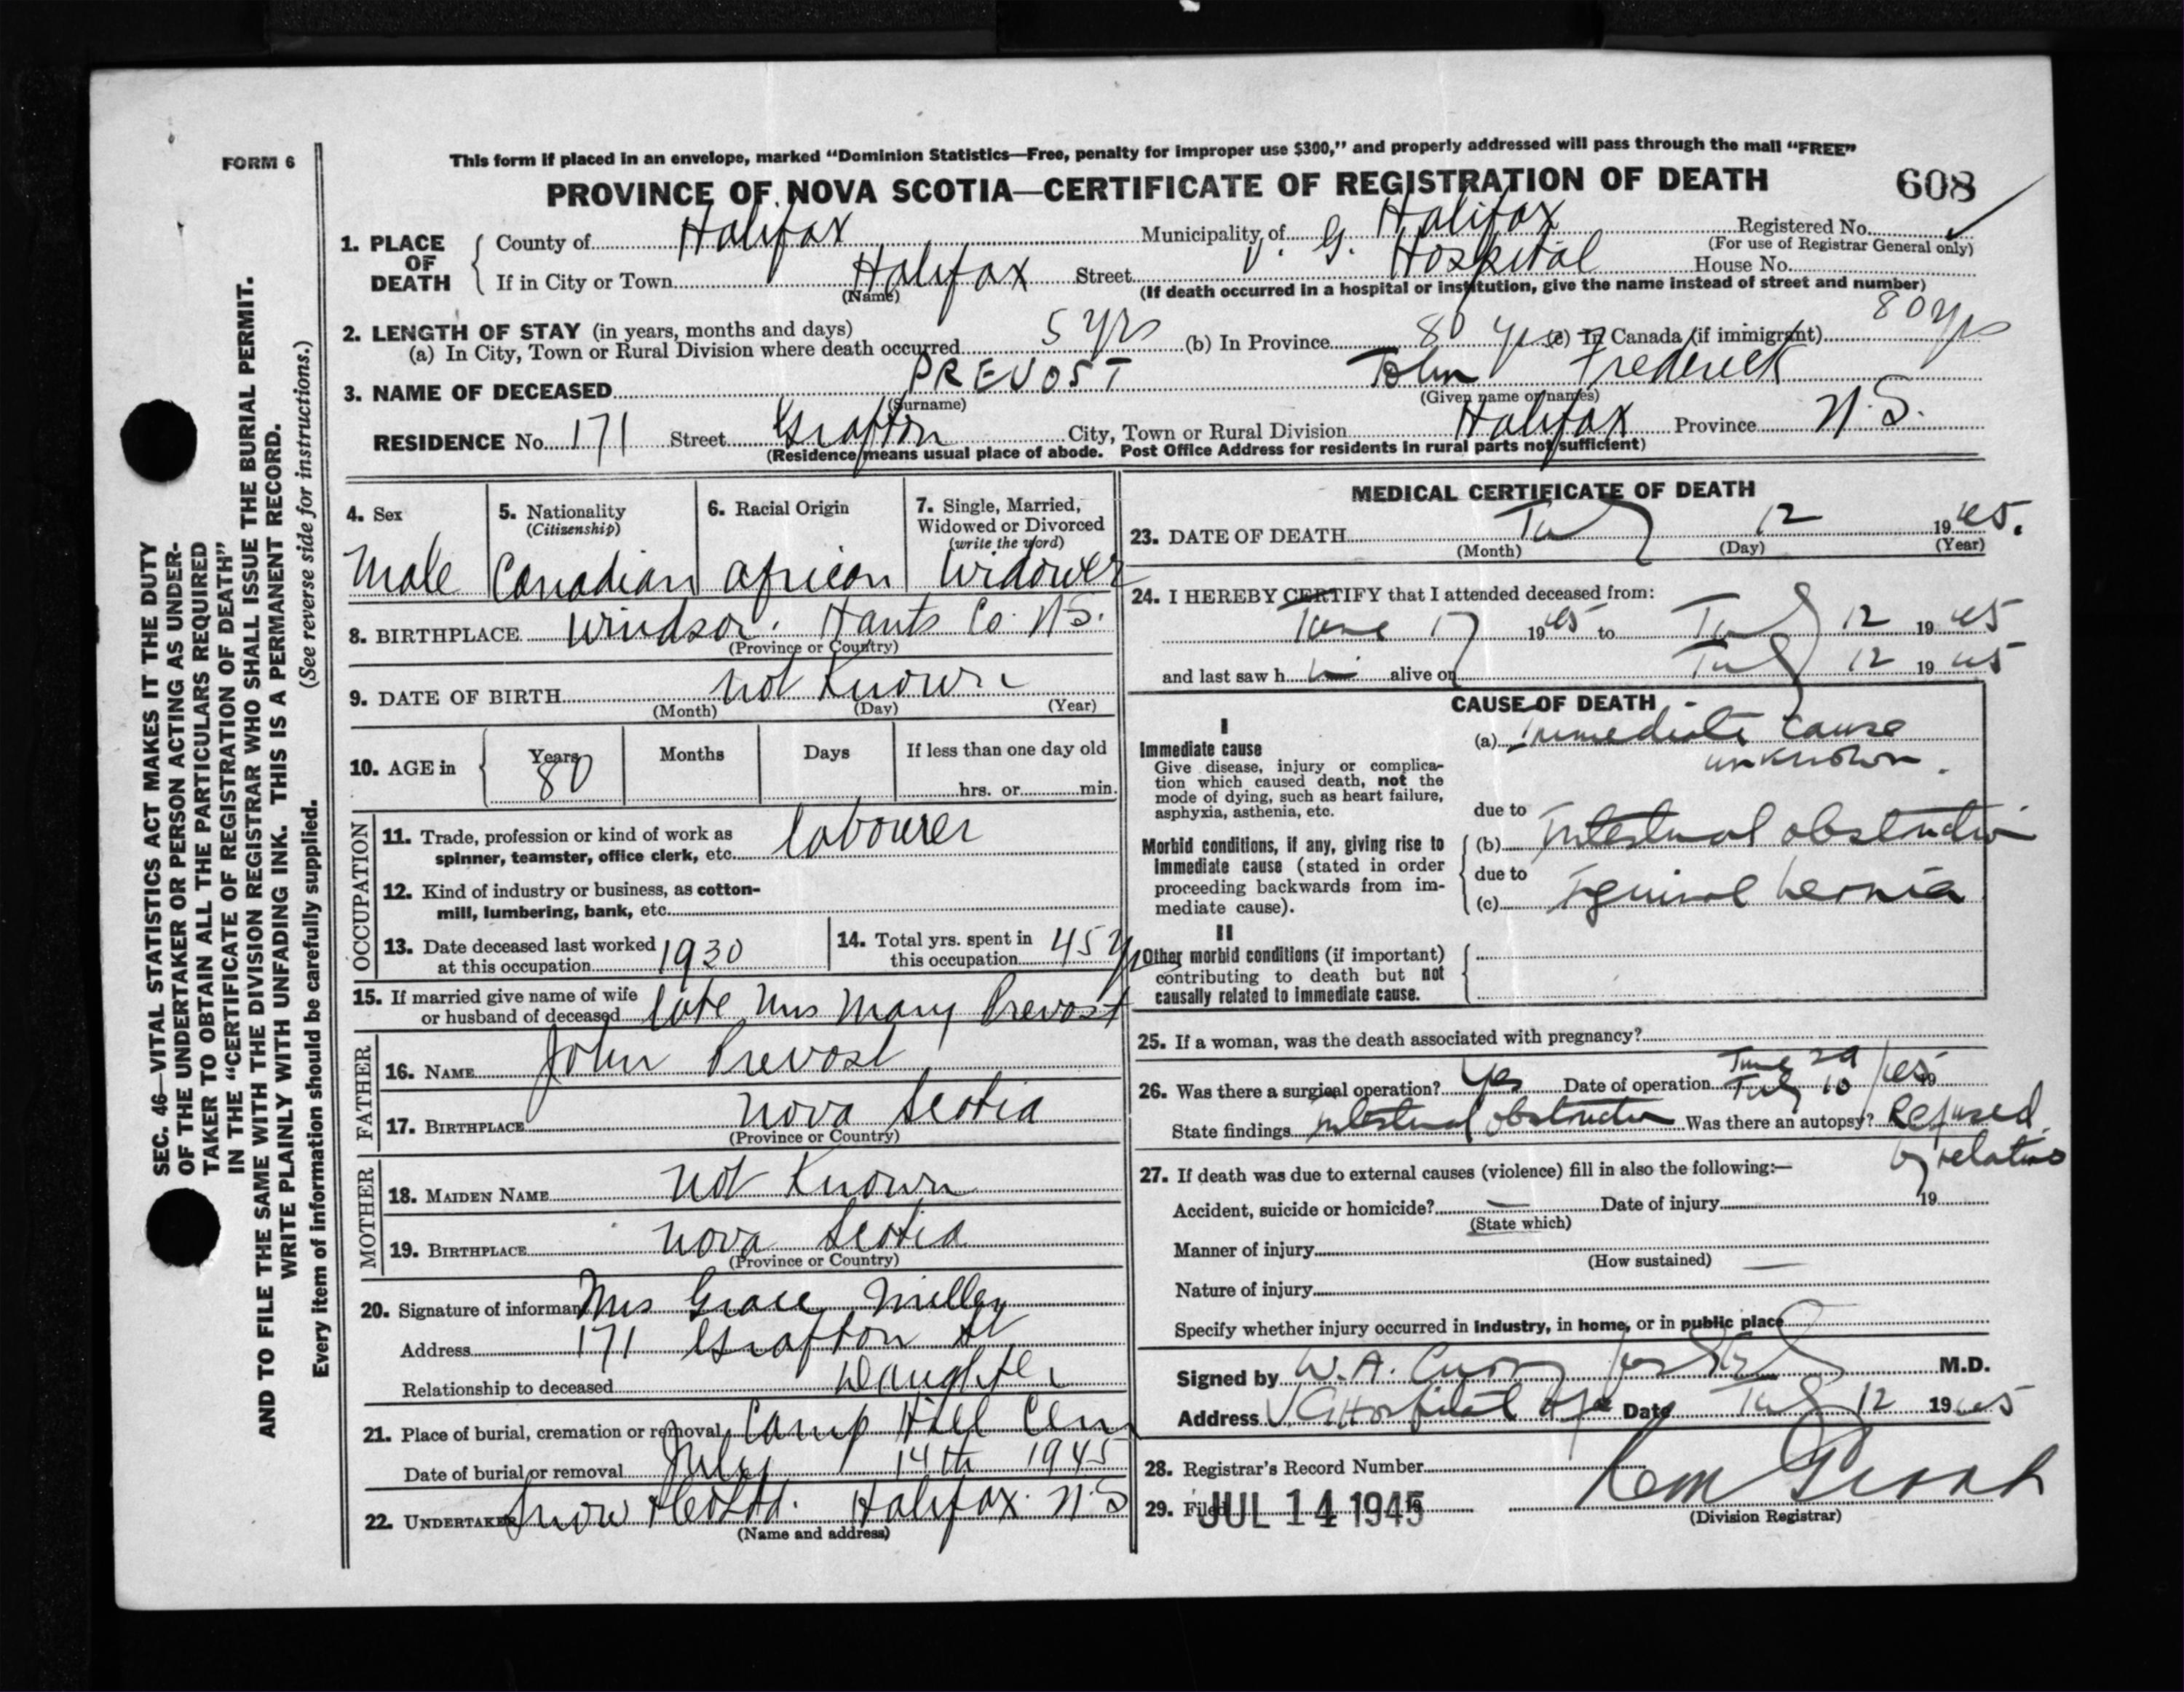 FORM 6
This form if placed in an envelope, marked “Dominion Statistics—Free, penalty for improper use $300,” and properly addressed will pass through the mail “FREE”
PROVINCE OF NOVA SCOTIA—CERTIFICATE OF REGISTRATION OF DEATH
608
1. PLACE OF DEATH
County of Halifax Municipality of Halifax Registered No.
(For use of Registrar General only)
If in City or Town Halifax Street V. G. Hospital House No.
(Name) (If death occurred in a hospital or institution, give the name instead of street and number)
2. LENGTH OF STAY (in years, months and days)
(a) In City, Town or Rural Division where death occurred 5 yrs (b) In Province 80 yrs (c) In Canada (if immigrant) 80 yrs
3. NAME OF DECEASED PREVOST John Frederick
(Surname) (Given name or names)
RESIDENCE No. 171 Street Grafton City, Town or Rural Division Halifax Province N.S.
(Residence means usual place of abode. Post Office Address for residents in rural parts not sufficient)
4. Sex
Male
5. Nationality
(Citizenship)
Canadian
6. Racial Origin
African
7. Single, Married,
Widowed or Divorced
(write the word)
Widower
8. BIRTHPLACE Windsor. Hants Co. N.S.
(Province or Country)
9. DATE OF BIRTH not Known
(Month) (Day) (Year)
10. AGE in Years Months Days If less than one day old
80 hrs. or min.
OCCUPATION
11. Trade, profession or kind of work as
spinner, teamster, office clerk, etc. labourer
12. Kind of industry or business, as cotton-
mill, lumbering, bank, etc.
13. Date deceased last worked
at this occupation 1930
14. Total yrs. spent in
this occupation 45 yrs
15. If married give name of wife
or husband of deceased late Mrs Mary Prevost
FATHER
16. NAME John Prevost
17. BIRTHPLACE Nova Scotia
(Province or Country)
MOTHER
18. MAIDEN NAME not Known
19. BIRTHPLACE Nova Scotia
(Province or Country)
20. Signature of informant Mrs Grace Miller
Address 171 Grafton St
Relationship to deceased Daughter
21. Place of burial, cremation or removal Camp Hill Cem
Date of burial or removal July 14th 1945
22. UNDERTAKER Snow & Co Ltd. Halifax. N.S
(Name and address)
MEDICAL CERTIFICATE OF DEATH
23. DATE OF DEATH July 12 1945.
(Month) (Day) (Year)
24. I HEREBY CERTIFY that I attended deceased from:
June 17 1945 to July 12 1945
and last saw h im alive on July 12 1945
CAUSE OF DEATH
I
Immediate cause
Give disease, injury or complica-
tion which caused death, not the
mode of dying, such as heart failure,
asphyxia, asthenia, etc.
(a) Immediate cause
unknown.
due to
Morbid conditions, if any, giving rise to
immediate cause (stated in order
proceeding backwards from im-
mediate cause).
(b) Intestinal obstruction
due to
(c) Iguinal hernia
II
Other morbid conditions (if important)
contributing to death but not
causally related to immediate cause.
25. If a woman, was the death associated with pregnancy?
26. Was there a surgical operation? Yes Date of operation June 29 July 10 /45 19
State findings intestinal obstruction Was there an autopsy? Refused
by relatives
27. If death was due to external causes (violence) fill in also the following:—
Accident, suicide or homicide? — Date of injury 19
(State which)
Manner of injury
(How sustained) —
Nature of injury
Specify whether injury occurred in industry, in home, or in public place
Signed by W. A. Curry M.D.
Address V G Hospital Hfx Date July 12 1945
28. Registrar's Record Number
29. Filed JUL 14 1945 19
(Division Registrar)
SEC. 46—VITAL STATISTICS ACT MAKES IT THE DUTY
OF THE UNDERTAKER OR PERSON ACTING AS UNDER-
TAKER TO OBTAIN ALL THE PARTICULARS REQUIRED
IN THE “CERTIFICATE OF REGISTRATION OF DEATH”
AND TO FILE THE SAME WITH THE DIVISION REGISTRAR WHO SHALL ISSUE THE BURIAL PERMIT.
WRITE PLAINLY WITH UNFADING INK. THIS IS A PERMANENT RECORD.
Every item of information should be carefully supplied. (See reverse side for instructions.)